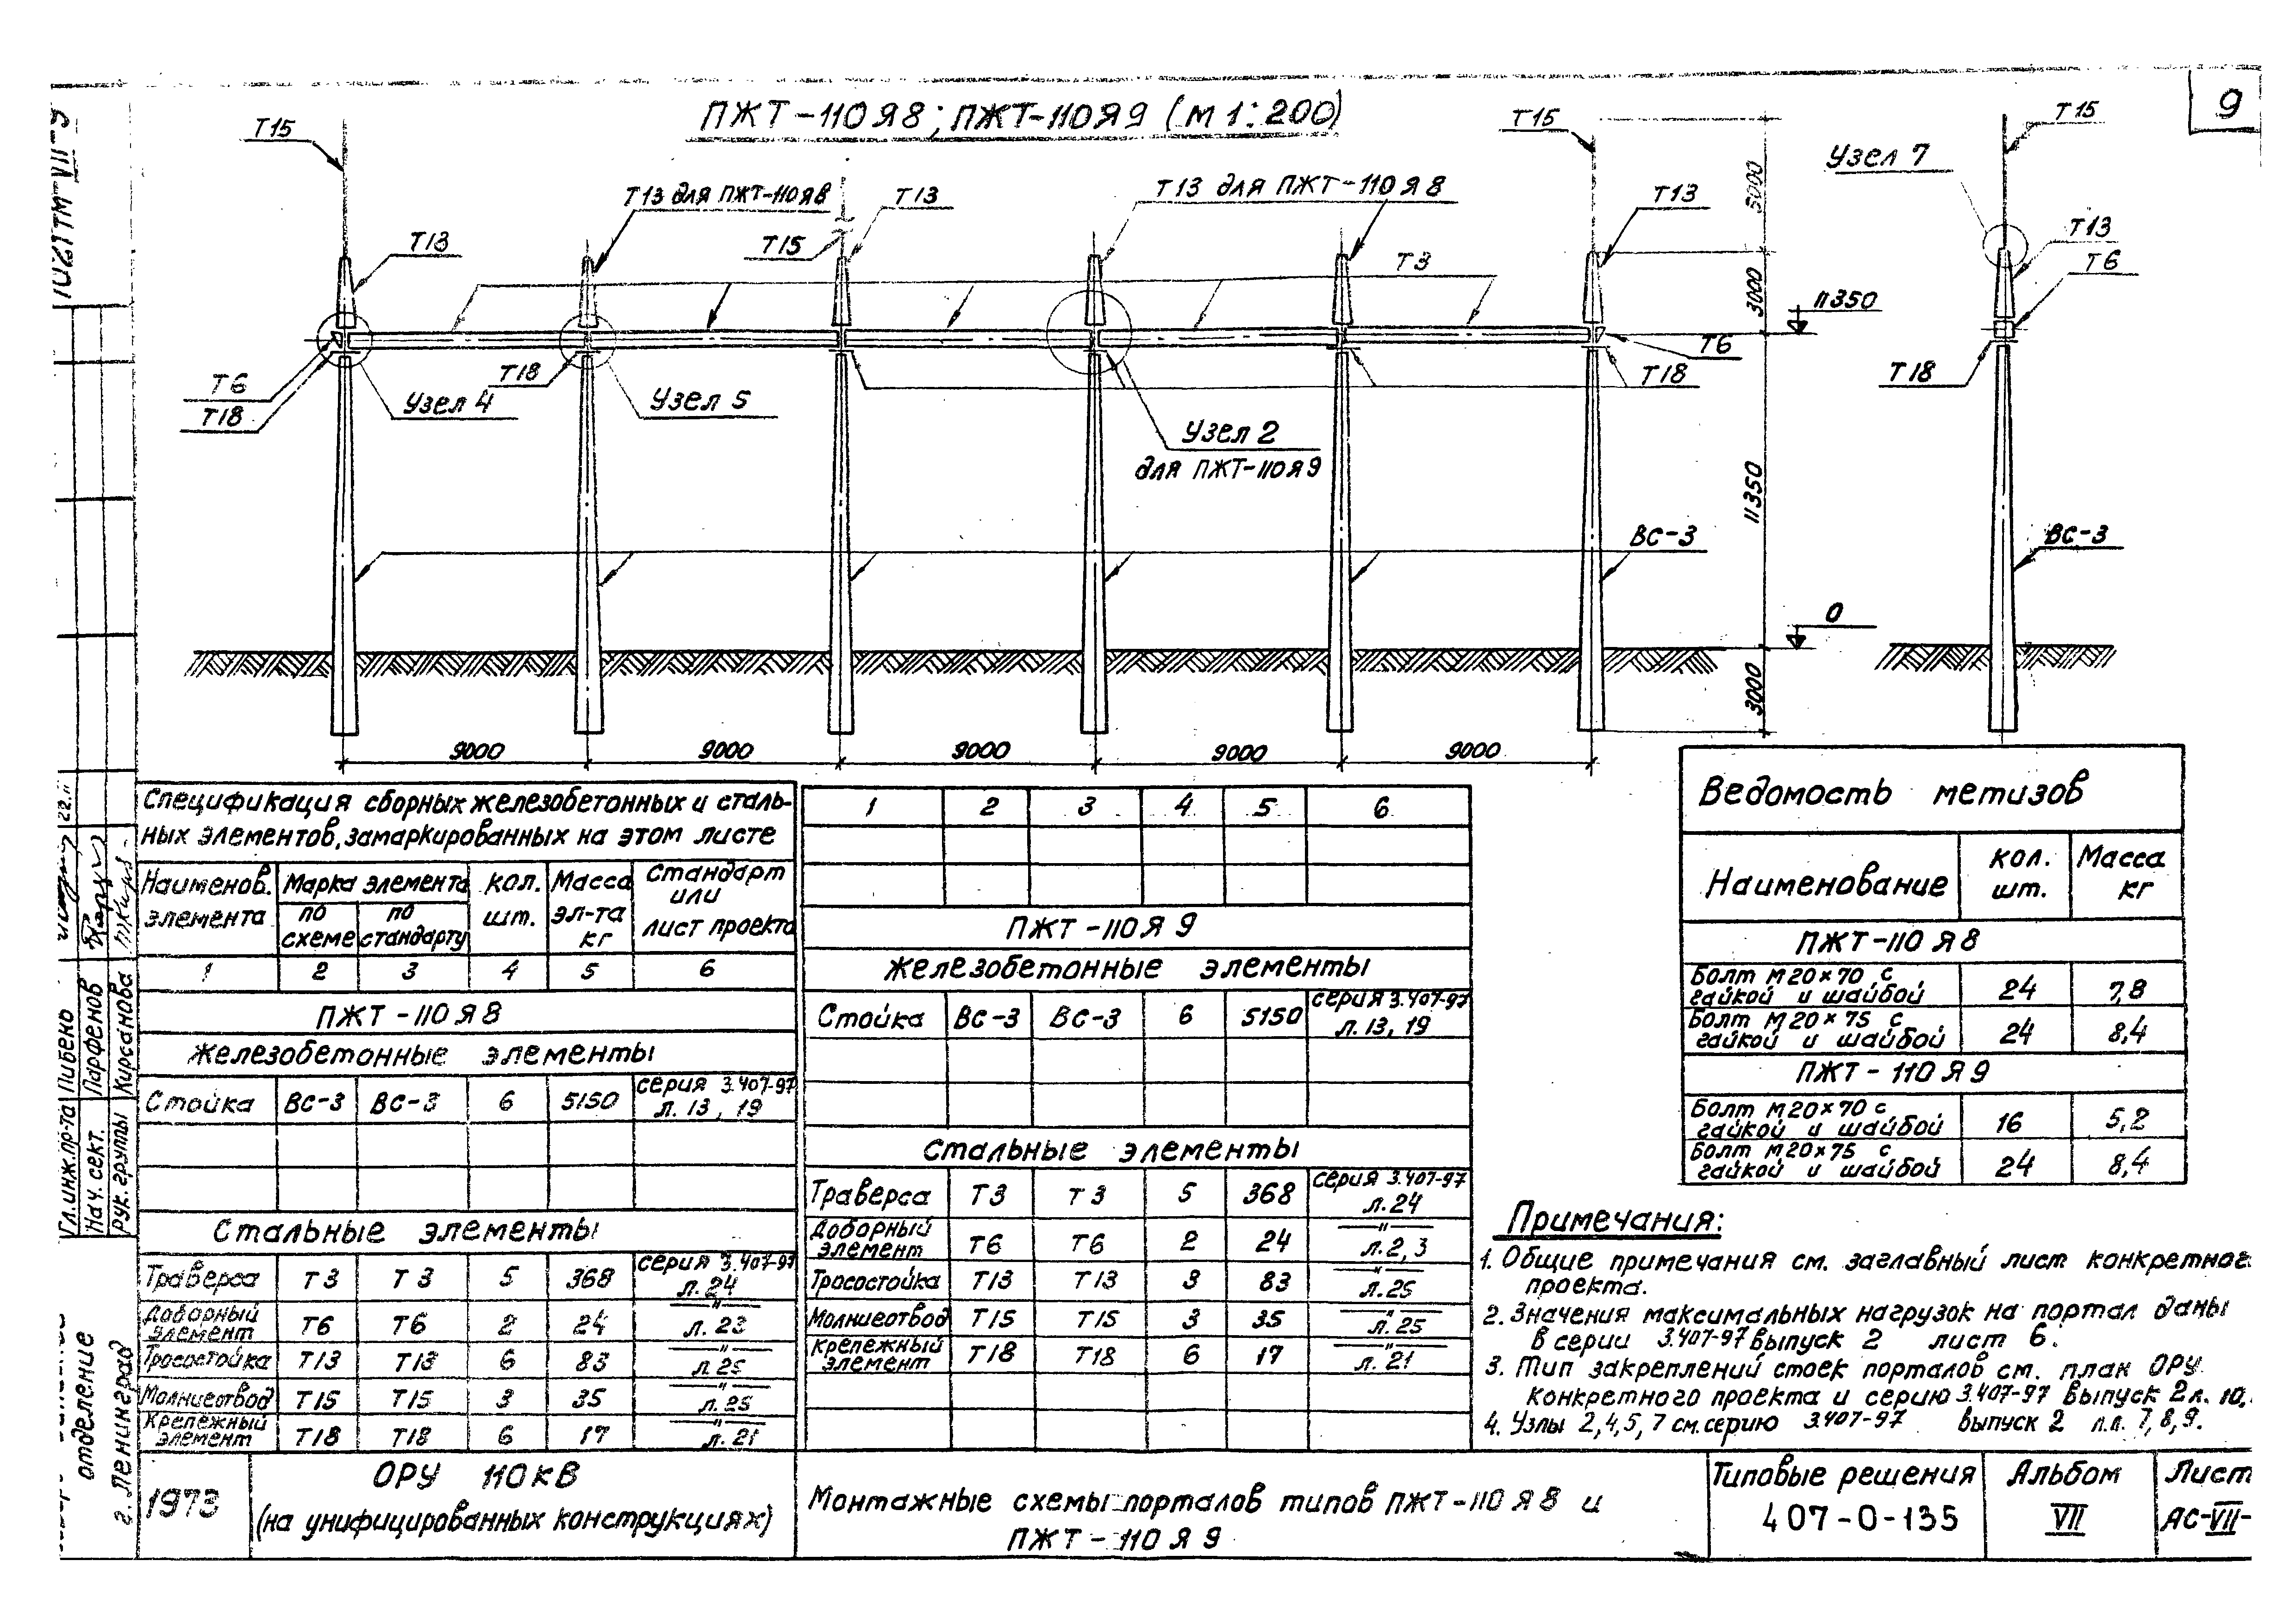 ПЖТ-110Я8; ПЖТ-110Я9 (М 1:200)
9
10121ТМ-VII-9
Т15
Т13
Т13 для ПЖТ-110Я8
Т15
Т13
Т13 для ПЖТ-110Я8
Т3
Т15
Т13
5000
3000
11350
Т6
Т18
Узел 4
Т18
Узел 5
Узел 2
для ПЖТ-110Я9
Т6
Т18
11350
ВС-3
0
3000
9000
9000
9000
9000
9000
Т15
Узел 7
Т13
Т6
Т18
ВС-3
Спецификация сборных железобетонных и сталь-
ных элементов, замаркированных на этом листе
Наименов. элемента
Марка элемента
по схеме
по стандарту
кол. шт.
Масса эл-та кг
Стандарт или лист проекта
1 2 3 4 5 6
ПЖТ-110Я8
Железобетонные элементы
Стойка ВС-3 ВС-3 6 5150 серия 3.407-97 л. 13, 19
Стальные элементы
Траверса Т3 Т3 5 368 серия 3.407-97 л. 24
Доборный элемент Т6 Т6 2 24 —"— л. 23
Тросостойка Т13 Т13 6 83 —"— л. 25
Молниеотвод Т15 Т15 3 35 —"— л. 25
Крепежный элемент Т18 Т18 6 17 —"— л. 21
1 2 3 4 5 6
ПЖТ-110Я9
Железобетонные элементы
Стойка ВС-3 ВС-3 6 5150 серия 3.407-97 л. 13, 19
Стальные элементы
Траверса Т3 Т3 5 368 серия 3.407-97 л. 24
Доборный элемент Т6 Т6 2 24 —"— л. 2,3
Тросостойка Т13 Т13 3 83 —"— л. 25
Молниеотвод Т15 Т15 3 35 —"— л. 25
Крепежный элемент Т18 Т18 6 17 —"— л. 21
Ведомость метизов
Наименование кол. шт. Масса кг
ПЖТ-110Я8
Болт М20×70 с гайкой и шайбой 24 7,8
Болт М20×75 с гайкой и шайбой 24 8,4
ПЖТ-110Я9
Болт М20×70 с гайкой и шайбой 16 5,2
Болт М20×75 с гайкой и шайбой 24 8,4
Примечания:
1. Общие примечания см. заглавный лист конкретног
проекта.
2. Значения максимальных нагрузок на портал даны
в серии 3.407-97 выпуск 2 лист 6.
3. Тип закреплений стоек порталов см. плак ОРУ
конкретного проекта и серию 3.407-97 выпуск 2 л. 10,
4. Узлы 2,4,5,7 см. серию 3.407-97 выпуск 2 л.л. 7,8,9.
Гл.инж.пр-та Пибено 22.11
Нач. сект. Парфенов
Рук. группы Кирсанова
отделение
г. Ленинград
1973
ОРУ 110кВ
(на унифицированных конструкциях)
Монтажные схемы порталов типов ПЖТ-110Я8 и
ПЖТ-110Я9
Типовые решения
407-0-135
Альбом
VII
Лист
АС-VII-